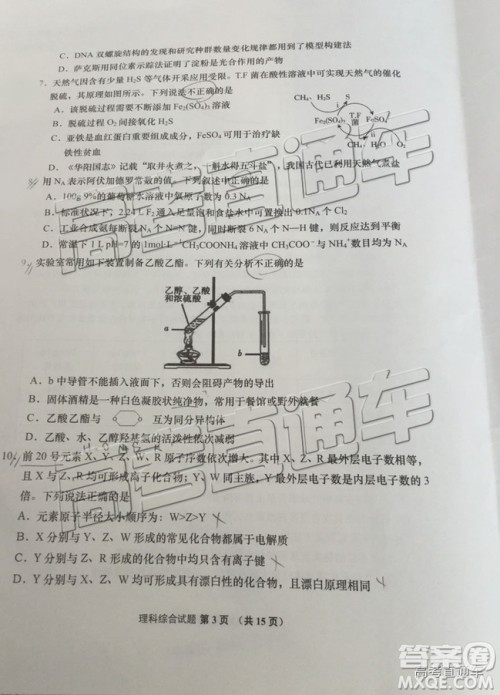 C、DNA 双螺旋结构的发现和研究种群数量变化规律都用到了模型构建法
D、萨克斯用同位素示踪法证明了淀粉是光合作用的产物
7、天然气因含有少量 H₂S 等气体开采应用受限。T.F 菌在酸性溶液中可实现天然气的催化
脱硫，其原理如图所示。下列说法不正确的是
A、该脱硫过程需要不断添加 Fe₂(SO₄)₃溶液
B、脱硫过程 O₂间接氧化 H₂S
C、亚铁是血红蛋白重要组成成分，FeSO₄可用于治疗缺
铁性贫血
D、《华阳国志》记载“取井火煮之，一斛水得五斗盐”，我国古代已利用天然气煮盐
H₂S
S
Fe₂(SO₄)₃
T.F
菌
FeSO₄
CH₄
H₂O
O₂
用 NA 表示阿伏加德罗常数的值，下列叙述中正确的是
A、100g 9%的葡萄糖水溶液中氧原子数为 0.3 NA
B、标准状况下，2.24 L F₂通入足量饱和食盐水中可置换出 0.1 NA 个 Cl₂
C、工业合成氨每断裂 NA 个 N≡N 键，同时断裂 6 NA 个 N-H 键，则反应达到平衡
D、常温下 1 L pH=7 的 1mol·L⁻¹CH₃COONH₄溶液中 CH₃COO⁻与 NH₄⁺数目均为 NA
9、实验室常用如下装置制备乙酸乙酯。下列有关分析不正确的是
乙醇、乙酸
和浓硫酸
a
b
A、b 中导管不能插入液面下，否则会阻碍产物的导出
B、固体酒精是一种白色凝胶状纯净物，常用于餐馆或野外就餐
C、乙酸乙酯与 互为同分异构体
D、乙酸、水、乙醇羟基氢的活泼性依次减弱
10、前 20 号元素 X、Y、Z、W、R 原子序数依次增大。其中 X、Z、R 最外层电子数相等，
且 X 与 Z、R 均可形成离子化合物；Y、W 同主族，Y 最外层电子数是内层电子数的 3
倍。下列说法正确的是
A、元素原子半径大小顺序为：W>Z>Y
B、X 分别与 Y、W 形成的常见化合物都属于电解质
C、Y 分别与 Z、R 形成的化合物中均只含有离子键
D、Y 分别与 X、Z、W 均可形成具有漂白性的化合物，且漂白原理相同
理科综合试题 第 3 页 （共 15 页）
高考直通车
高考直通车
高考直通车
答案圈
MXQE.COM